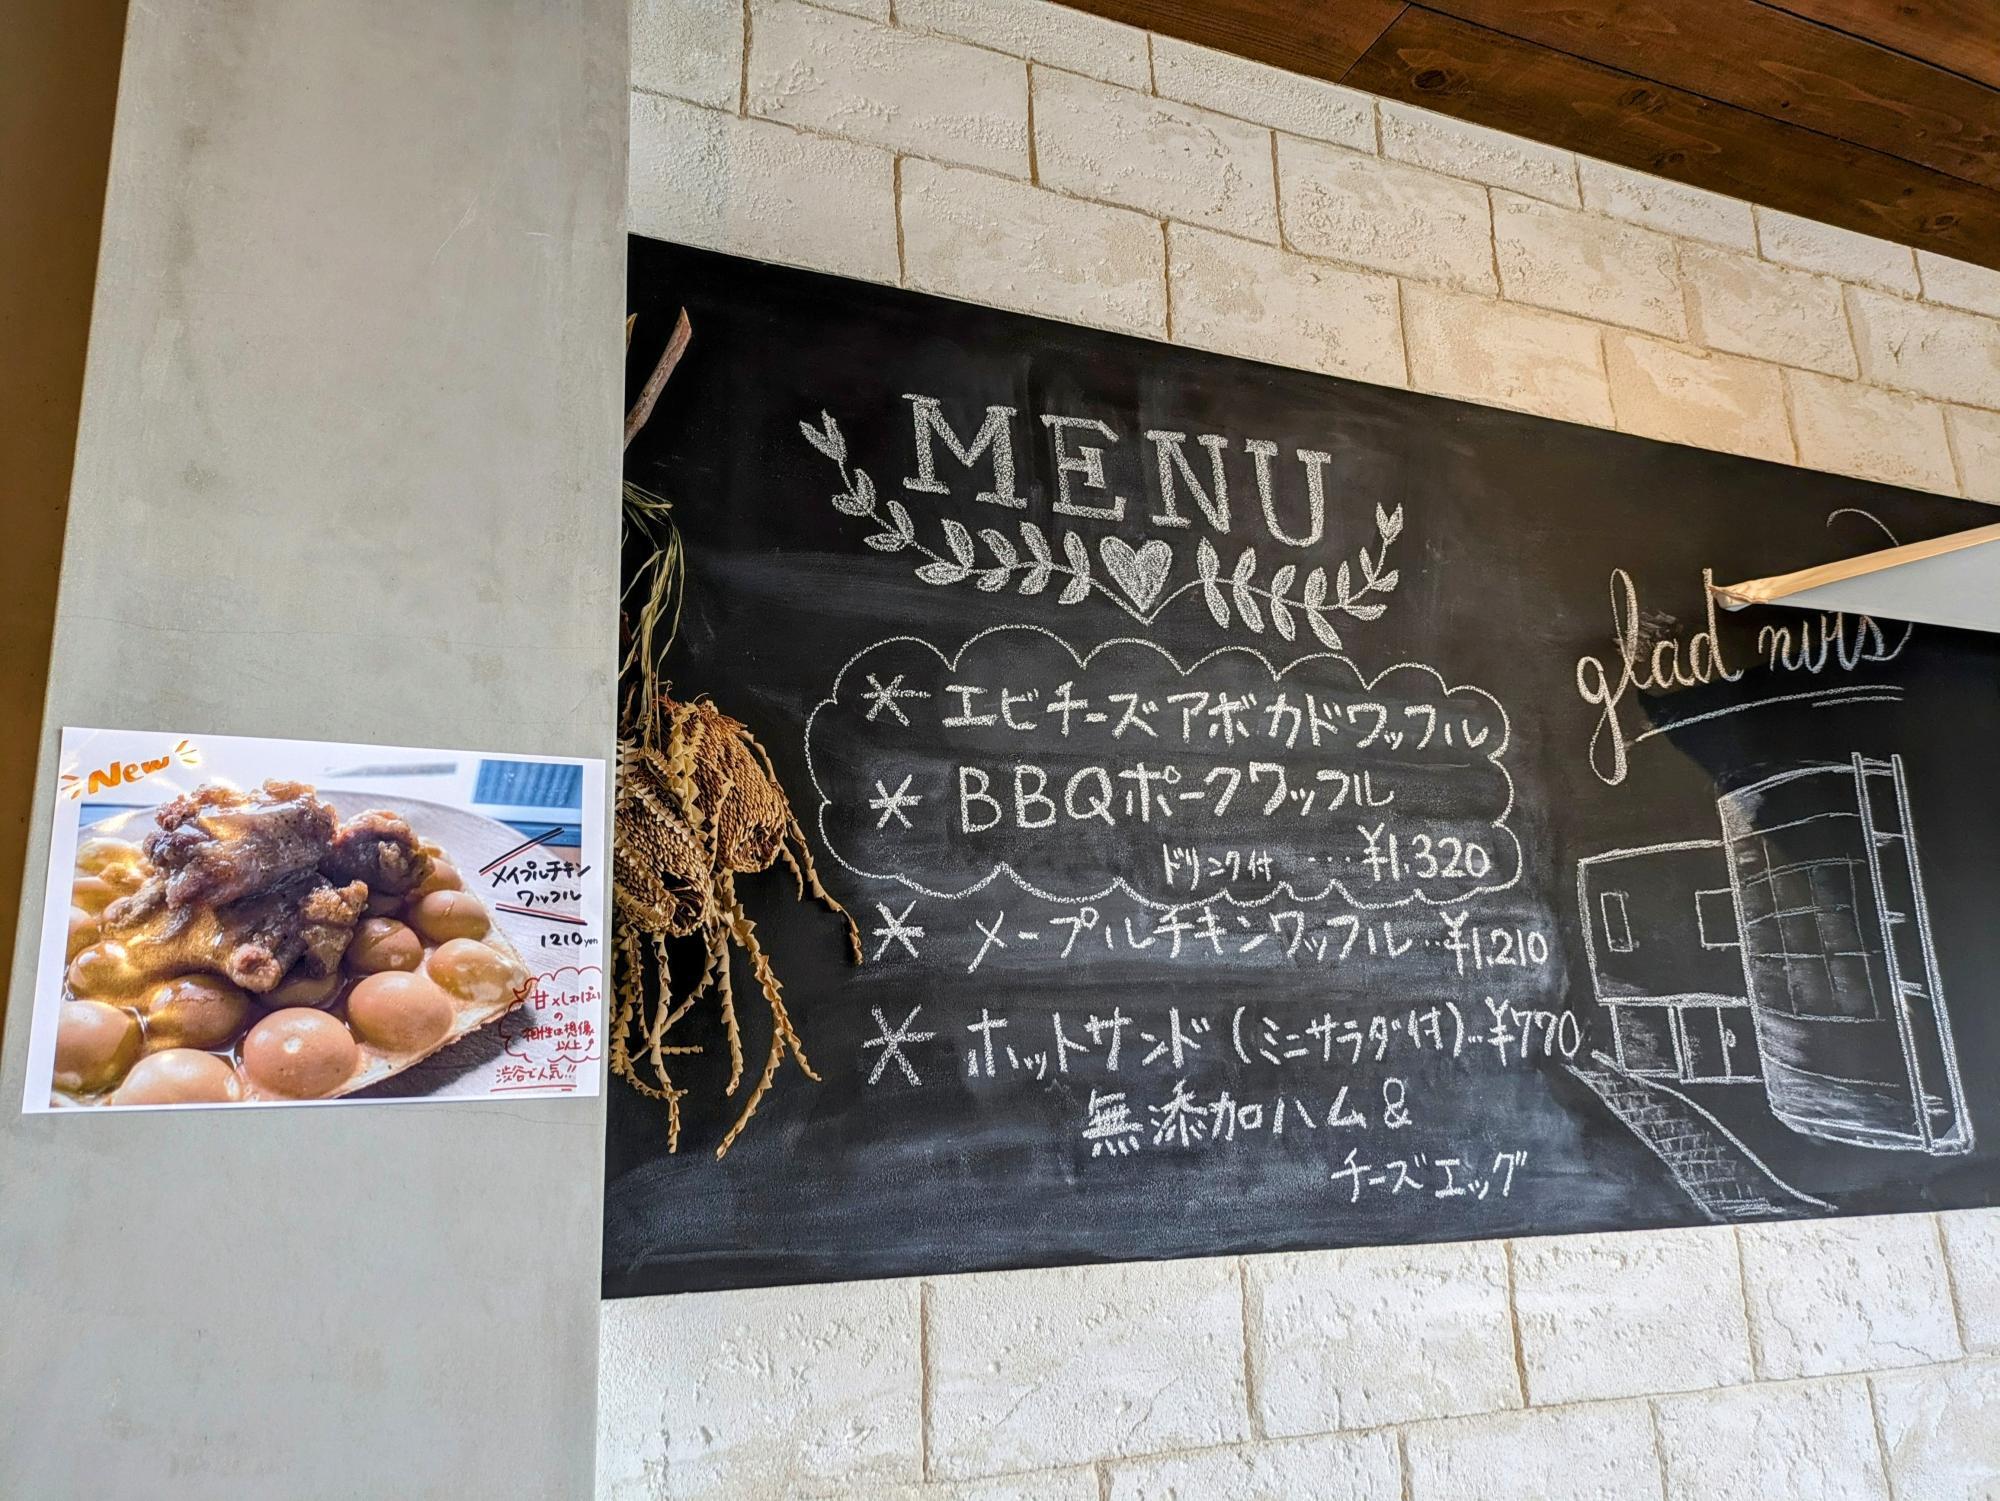 New
メイプルチキン
ワッフル
1210yen
甘×しょっぱい
の
相性は想像
以上♪
渋谷で人気!!
MENU
* エビチーズアボカドワッフル
* BBQポークワッフル
ドリンク付 … ¥1.320
* メープルチキンワッフル‥¥1.210
* ホットサンド(ミニサラダ付)‥¥770
無添加ハム&
チーズエッグ
glad nuts